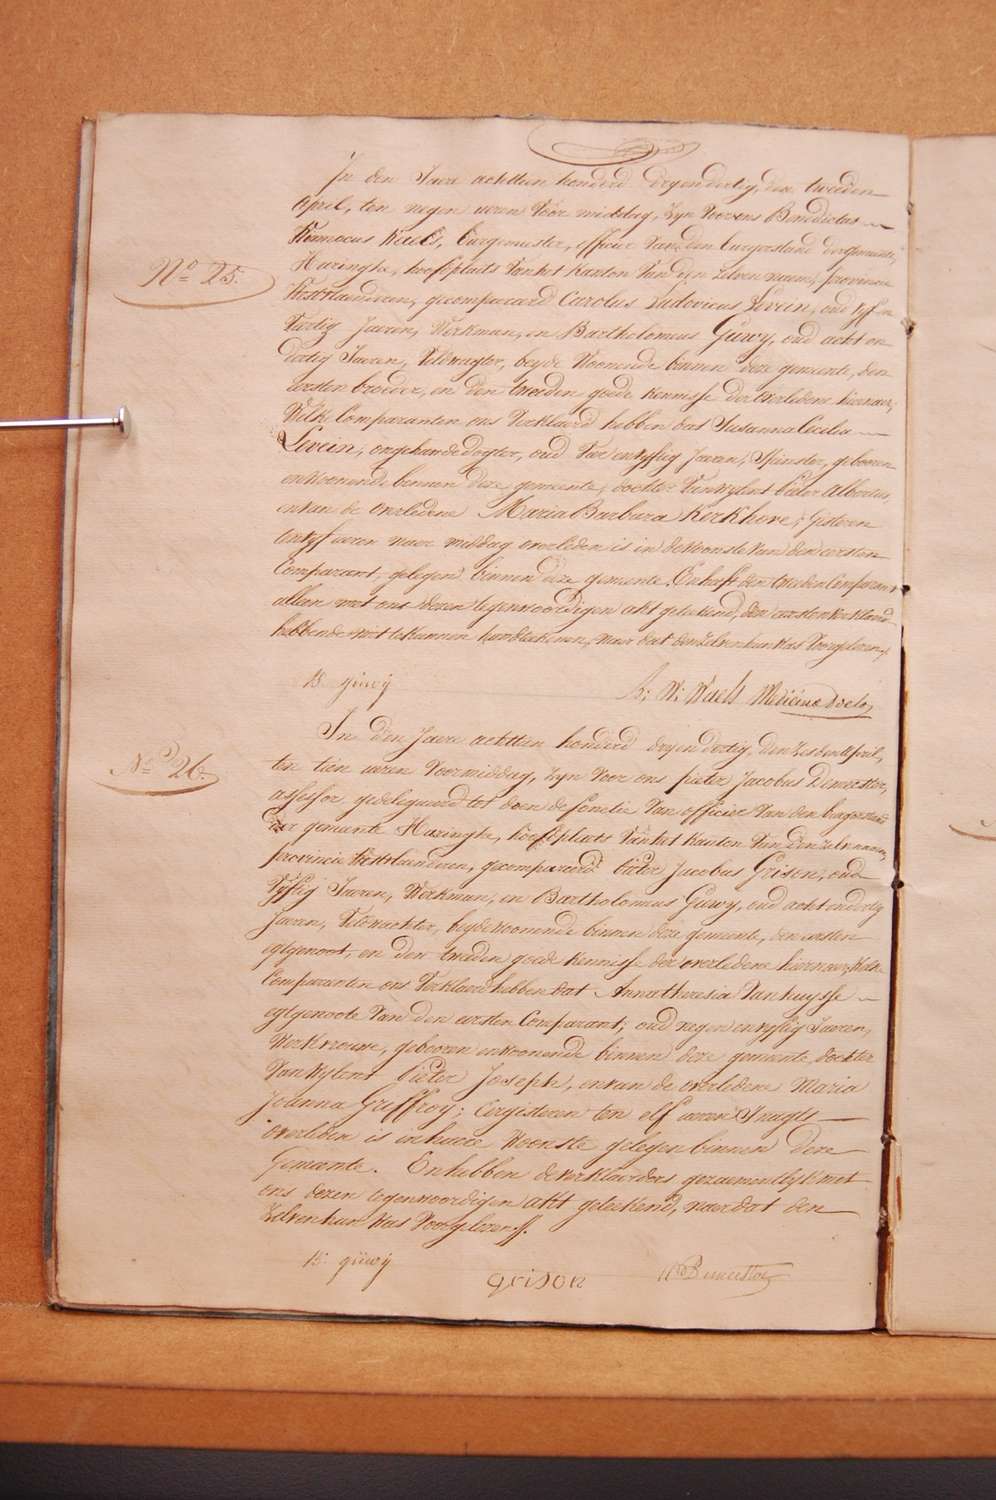 In den Jare achttien honderd dryendertig, den tweeden
April, ten negen uren voor middag, zyn voor ons Benedictus
Winnocus Waels, burgemeester, officier van den burgerstand der gemeente
Nº 25.
Haringhe, hoofdplaets van het kanton van dezen naem, provincie
Westvlaenderen, gecompareerd Carolus Ludovicus Levein, oud vyf en
Veertig Jaeren, Werkman, en Bartholomeus Guwy, oud acht en
dertig Jaeren, Veldwagter, beyde Woonende binnen deze gemeente, den
eersten broeder, en den tweeden goede kennisse der overledene hiernaer,
Welke Comparanten ons Verklaerd hebben dat Susanna Cecilia
Levein, ongehuwde dogter, oud en vyftig Jaeren, Spinster, gebooren
en woonende binnen deze gemeente, dochter van wylent Pieter Albertus,
en van de overledene Maria Barbara Kerkhove, gisteren
ten vyf uren naer middag overleden is in de Woonste van den eersten
Comparant, gelegen binnen deze gemeente. En heeft den tweeden Comparant
alleen met ons dezen tegenwoordigen akt geteekend, den eersten verklaerd
hebbende niet te kunnen handteekenen, naer dat den zelven hun was voorgelezen.
B. guwÿ B: W: Waels Medicinae doctor
In den Jare achttien honderd dryendertig, den zesden April,
Nº 26.
ten tien uren Voormiddag, zyn Voor ons pieter Jacobus Demeester,
assessor gedelegueerd tot doen de functie van officier van den burgerstand
der gemeente Haringhe, hoofdplaets van het kanton van den zelven naem,
provincie Westvlaenderen, gecompareerd Pieter Jacobus Grison, oud
Vyftig Jaeren, Werkman, en Bartholomeus Guwy, oud acht en dertig
Jaeren, Veldwachter, beyde woonende binnen deze gemeente, den eersten
egtgenoot, en den tweeden goede kennisse der overledene hiernaer, Welke
Comparanten ons Verklaerd hebben dat Anna theresia Vanhuysse
egtgenoote van den eersten Comparant, oud negen en vyftig Jaeren,
Werkvrouwe, gebooren en woonende binnen deze gemeente dochter
van Wylent Pieter Joseph, en van de overledene Maria
Joanna Griffroy; Eergisteren ten elf uren S'nagts
overleden is in haere Woonste gelegen binnen deze
Gemeente. En hebben de verklaerders gezaementlyk met
ons dezen tegenwoordigen akt geteekend, naer dat den
zelven hun was Voorgelezen.
B: guwÿ grison